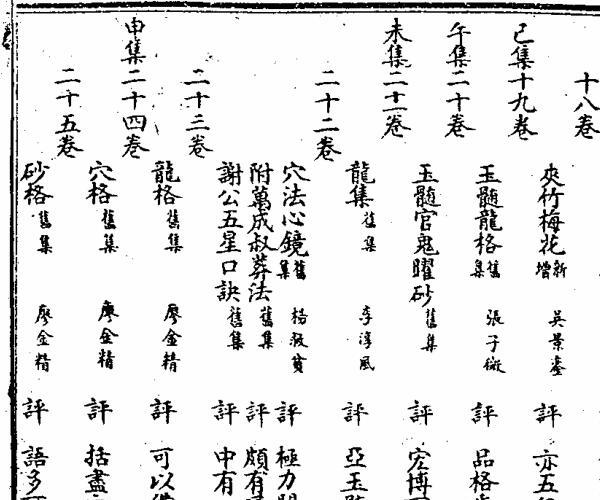 十八卷
夾竹梅花 新增 吳景鸞 評 亦五
巳集十九卷
玉髓龍格 舊集 張子微 評 品格
午集二十卷
玉髓官鬼曜砂 舊集 評 宏博
未集二十一卷
龍集 舊集 李淳風 評 亞玉
二十二卷
穴法心鏡 舊集 楊救貧 評 極力
附萬成叔葬法 舊集 評 頗有
謝公五星口訣 舊集 評 中有
二十三卷
龍格 舊集 廖金精 評 可以
申集二十四卷
穴格 舊集 廖金精 評 括盡
二十五卷
砂格 舊集 廖金精 評 語多